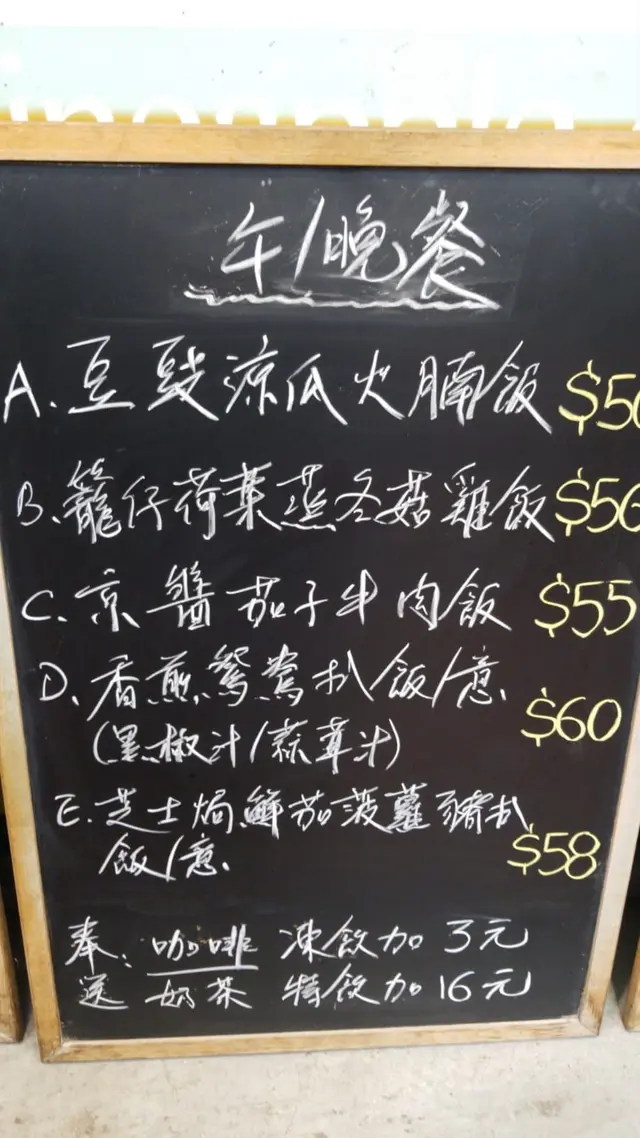 午/晚餐
A. 豆豉涼瓜火腩飯 $50
B. 籠仔荷葉蒸冬菇雞飯 $56
C. 京醬茄子牛肉飯 $55
D. 香煎鴛鴦扒飯/意
(黑椒汁/蒜茸汁) $60
E. 芝士焗鮮茄菠蘿豬扒
飯/意 $58
奉: 咖啡 凍飲加 3元
送 奶茶 特飲加 16元